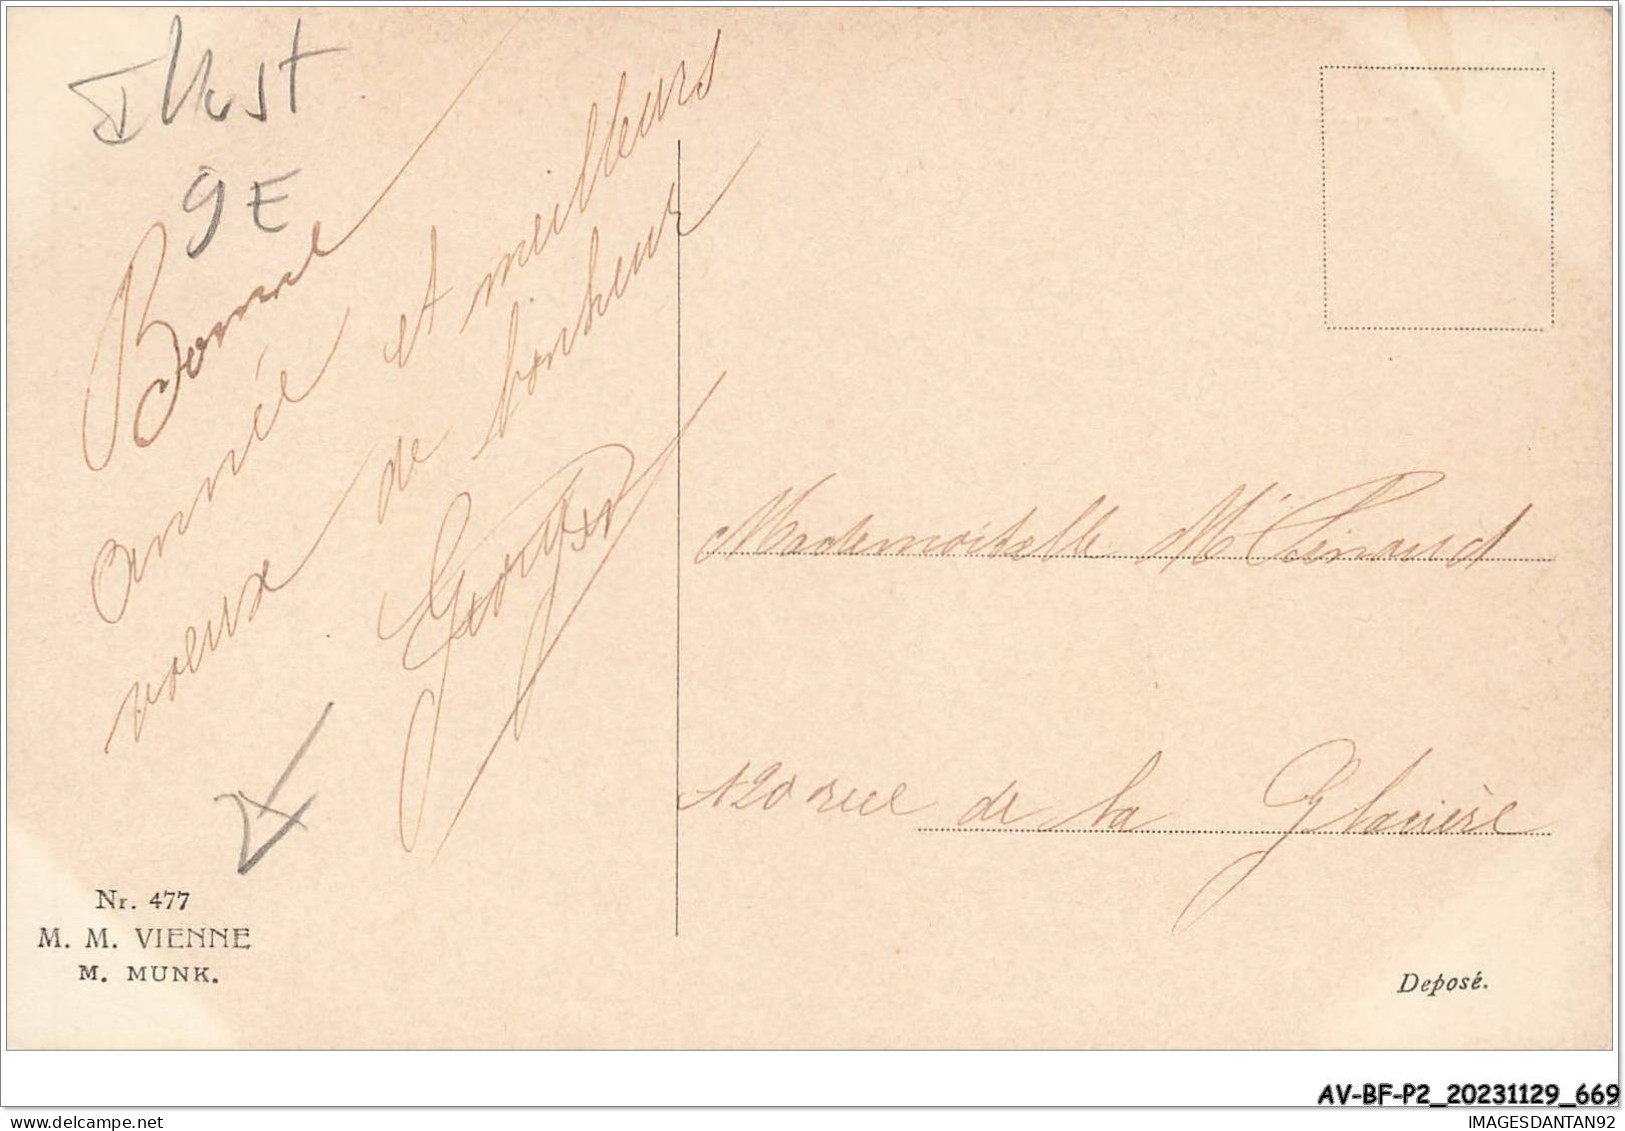 Illust
9E
Bonne
année et meilleurs
voeux de bonheur
Mademoiselle M Pinaud
120 rue de la Glacière
Nr. 477
M. M. VIENNE
M. MUNK.
Deposé.
AV-BF-P2_20231129_669
IMAGESDANTAN92